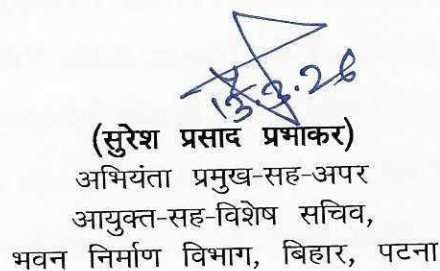 13.3.26
(सुरेश प्रसाद प्रभाकर)
अभियंता प्रमुख-सह-अपर
आयुक्त-सह-विशेष सचिव,
भवन निर्माण विभाग, बिहार, पटना